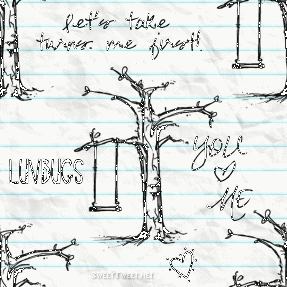 let's take
turns me first!
YOU
LUVBUGS
ME
SWEETTWEET.NET